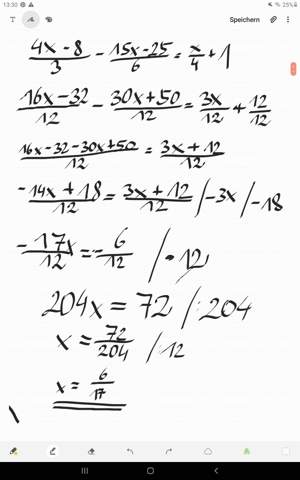 13:30
25%
T
Speichern
4x-8/3 - 15x-25/6 = x/4 + 1
16x-32/12 - 30x+50/12 = 3x/12 + 12/12
16x-32-30x+50/12 = 3x+12/12
-14x+18/12 = 3x+12/12 /-3x /-18
-17x/12 = -6/12 /·12
204x = 72 /:204
x = 72/204 /12
x = 6/17